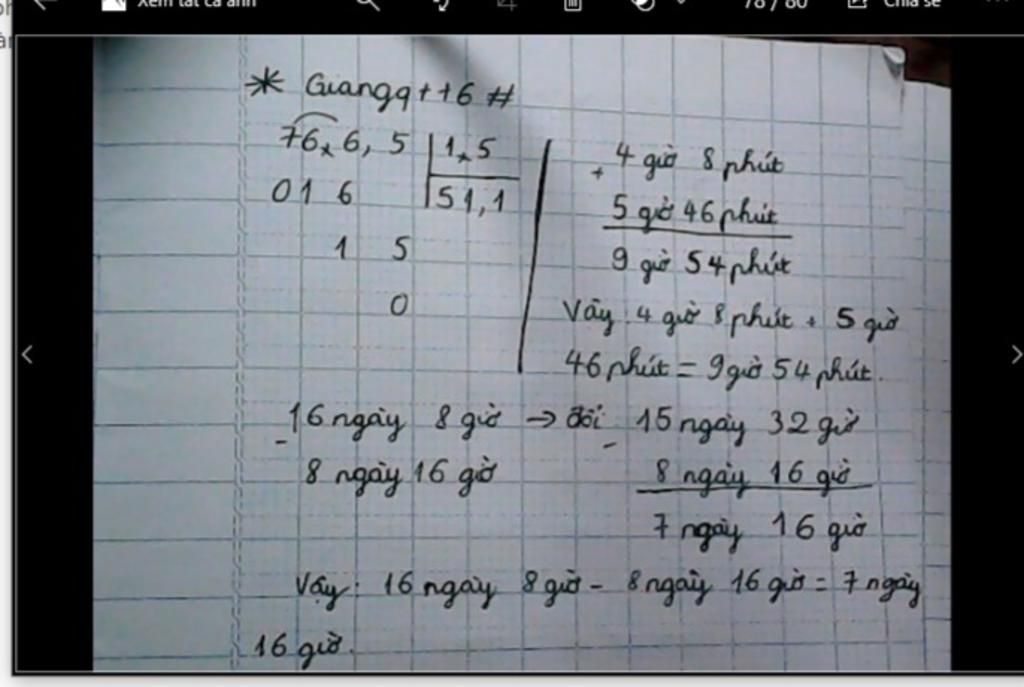 Xem tất cả ảnh
78 / 80
Chia sẻ
* Giangg++6 #
76,6,5 | 1,5
016 | 51,1
1 5
0
+ 4 giờ 8 phút
5 giờ 46 phút
9 giờ 54 phút
Vây: 4 giờ 8 phút + 5 giờ
46 phút = 9 giờ 54 phút.
- 16 ngày 8 giờ → đổi - 15 ngày 32 giờ
8 ngày 16 giờ 8 ngày 16 giờ
7 ngày 16 giờ
Vậy: 16 ngày 8 giờ - 8 ngày 16 giờ = 7 ngày
16 giờ.